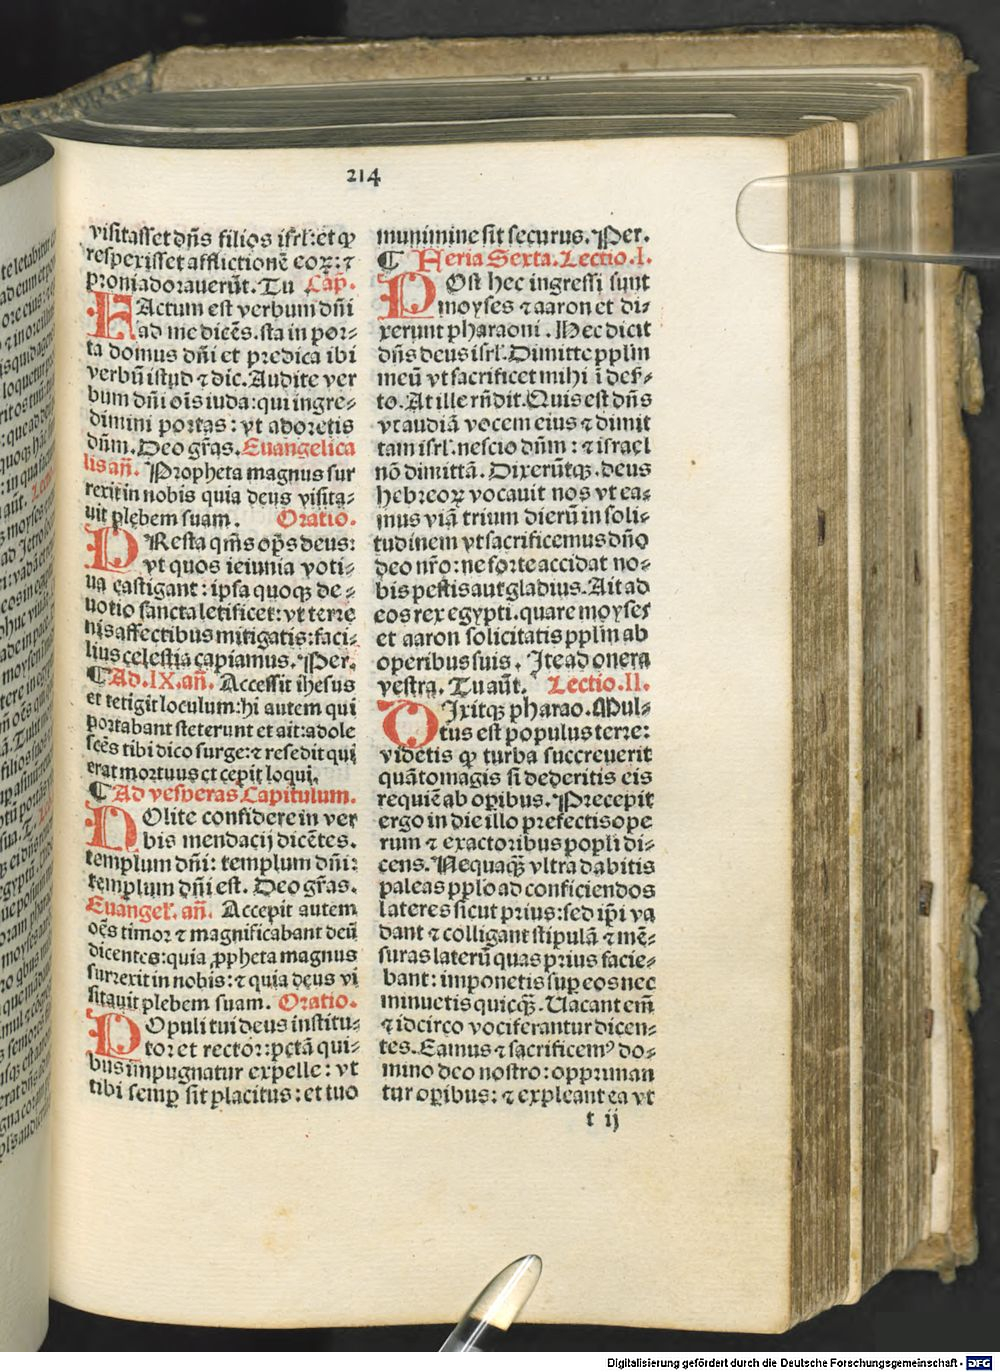 214
visitasset dñs filios isrl: et ꝙ
respexisset afflictionē eoꝝ: ⁊
proni adorauerūt. Tu Cap.
FActum est verbum dñi
ad me dicēs. sta in por⸗
ta domus dñi et predica ibi
verbū istud ⁊ dic. Audite ver
bum dñi oīs iuda: qui ingre⸗
dimini portas: vt adoretis
dñm. Deo gr̄as. Euangelica
lis añ. Propheta magnus sur
rexit in nobis quia deus visita⸗
uit plebem suam. Oratio.
PResta qm̄s op̄s deus:
vt quos ieiunia voti⸗
ua castigant: ipsa quoqꝫ de⸗
uotio sancta letificet: vt terre
nis affectibus mitigatis: faci⸗
lius celestia capiamus. Per.
¶ Ad .IX. añ. Accessit ihesus
et tetigit loculum: hi autem qui
portabant steterunt et ait: adole
scēs tibi dico surge: ⁊ resedit qui
erat mortuus et cepit loqui.
¶ Ad vesperas Capitulum.
NOlite confidere in ver
bis mendacij dicētes.
templum dñi: templum dñi:
templum dñi est. Deo gr̄as.
Euangeł. añ. Accepit autem
oēs timor ⁊ magnificabant deū
dicentes: quia ꝓpheta magnus
surrexit in nobis: ⁊ quia deus vi
sitauit plebem suam. Oratio.
POpuli tui deus institu⸗
tor: et rector: pctā qui⸗
bus impugnatur expelle: vt
tibi semꝑ sit placitus: et tuo
munimine sit securus. Per.
¶ Feria Sexta. Lectio .I.
POst hec ingressi sunt
moyses ⁊ aaron et di⸗
xerunt pharaoni. Hec dicit
dñs deus isrl. Dimitte pplm
meū vt sacrificet mihi ī des̄⸗
to. At ille rñdit. Quis est dñs
vt audiā vocem eius ⁊ dimit
tam isrl. nescio dñm: ⁊ israel
nō dimittā. Dixerūtqꝫ. deus
hebreoꝝ vocauit nos vt ea⸗
mus viā trium dierū in soli⸗
tudinem vt sacrificemus dño
deo nr̄o: ne forte accidat no⸗
bis pestis aut gladius. Ait ad
eos rex egypti. quare moyses
et aaron solicitatis pplm ab
operibus suis. Ite ad onera
vestra. Tu aūt. Lectio .II.
DIxitqꝫ pharao. Mul⸗
tus est populus terre:
videtis ꝙ turba succreuerit
quātomagis si dederitis eis
requiē ab oꝑibus. Precepit
ergo in die illo prefectis ope
rum ⁊ exactoribus popli di⸗
cens. Nequaqꝫ vltra dabitis
paleas pplo ad conficiendos
lateres sicut prius: sed ip̄i va
dant ⁊ colligant stipulā ⁊ mē⸗
suras laterū quas prius facie⸗
bant: imponetis suꝑ eos nec
minuetis quicqꝫ. Uacant em̄
⁊ idcirco vociferantur dicen⸗
tes. Eamus ⁊ sacrificemꝰ do⸗
mino deo nostro: oppriman
tur oꝑibus: ⁊ expleant ea vt
t ij
Digitalisierung gefördert durch die Deutsche Forschungsgemeinschaft - DFG